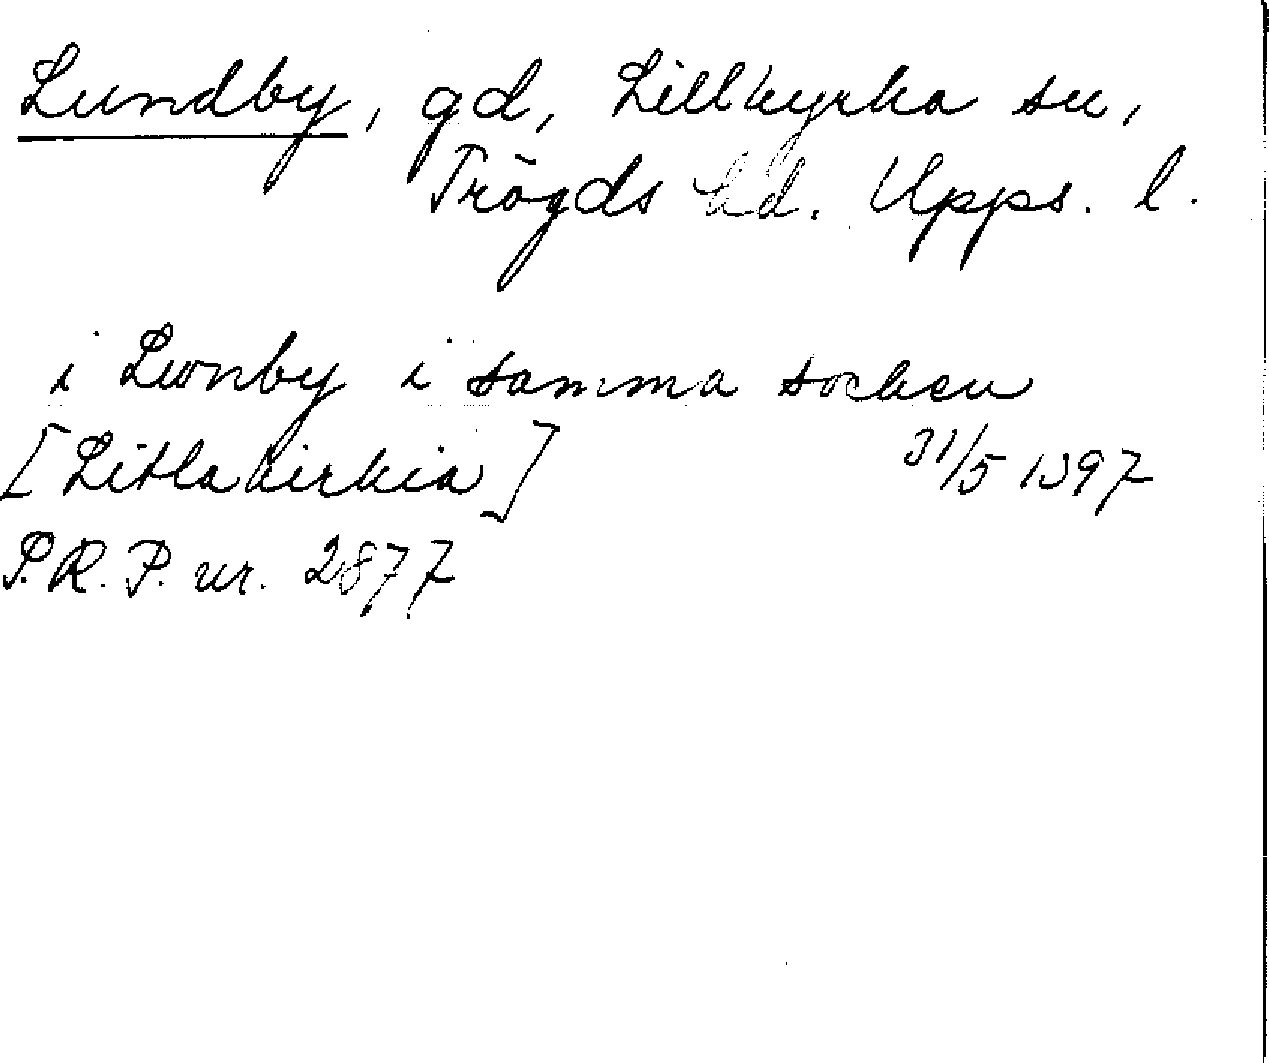 Lundby, gd, Lillkyrka sn,
Trögds hd. Upps. l.
i Lwnby i samma socken
[Litlakirkia] 31/5 1397
S.R.P. nr. 2877